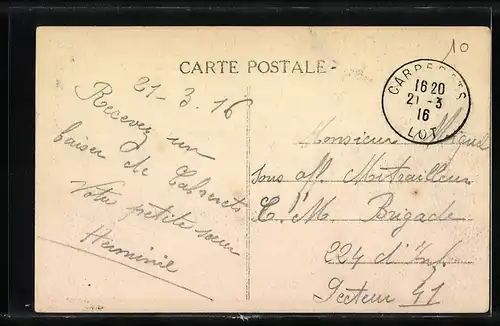 10
CARTE POSTALE
CABRERETS
16 20
21 - 3
16
LOT
21-3.16
Recevez un
baiser de Cabrerets
Votre petite sœur
Herminie
Monsieur Miquel
sous off. Mitrailleur
C. M. Brigade
224 d'Inf.
Secteur 41